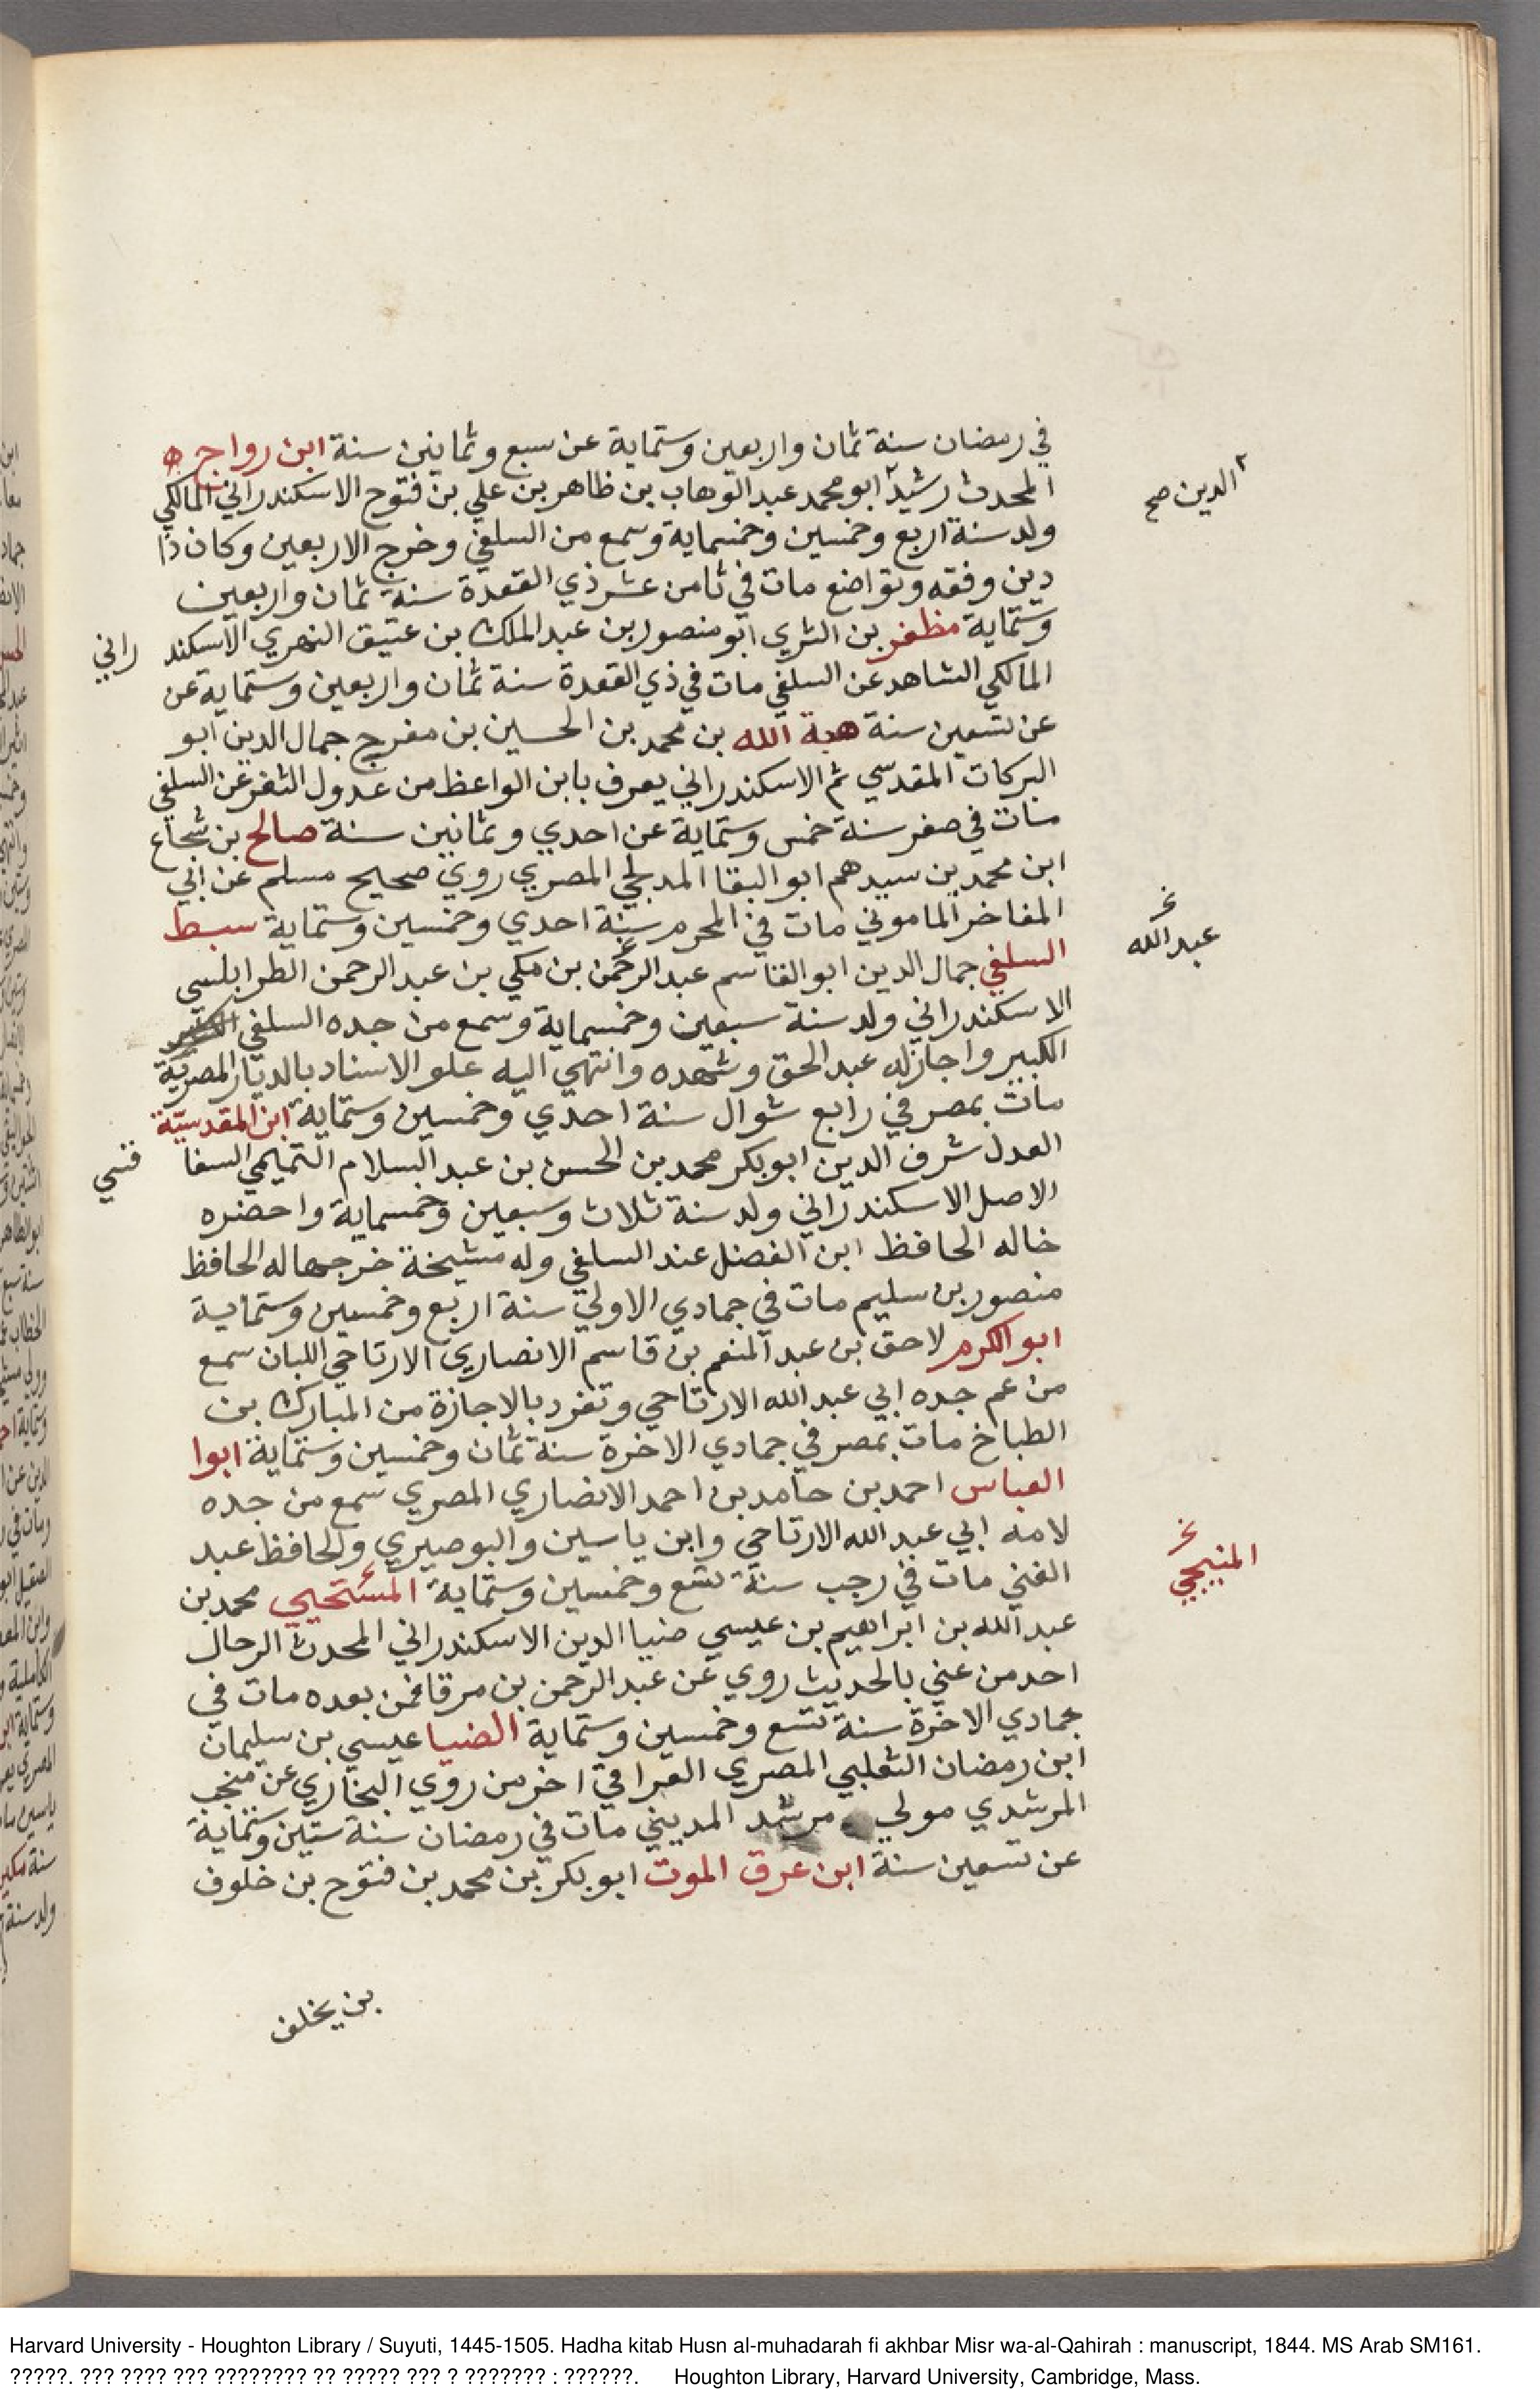 في رمضان سنة ثمان واربعين وستماية عن سبع وثمانين سنة ابن رواج ه
المحدث رشيد ابو محمد عبد الوهاب بن ظاهر بن علي بن فتوح الاسكندراني المالكي
الدين صح
ولد سنة اربع وخمسين وخمسماية وسمع من السلفي وخرج الاربعين وكان ذا
دين وفقه وتواضع مات في ثامن عشر ذي القعدة سنة ثمان واربعين
وستماية مظفر بن الثري ابو منصور بن عبد الملك بن عتيق النهري الاسكند راني
المالكي الشاهد عن السلفي مات في ذي القعدة سنة ثمان واربعين وستماية عن
عن تسعين سنة هبة الله بن محمد بن الحسين بن مفرج جمال الدين ابو
البركات المقدسي ثم الاسكندراني يعرف بابن الواعظ من عدول الثغر عن السلفي
مات في صفر سنة خمس وستماية عن احدي وثمانين سنة صالح بن شجاع
ابن محمد بن سيدهم ابو البقا المدلجي المصري روي صحيح مسلم عن ابي
المفاخر الماموني مات في المحرم سنة احدي وخمسين وستماية سبط
عبد الله
السلفي جمال الدين ابو القاسم عبد الرحمن بن مكي بن عبد الرحمن الطرابلسي
الاسكندراني ولد سنة سبعين وخمسماية وسمع من جده السلفي
الكبير واجازله عبد الحق وشهده وانتهي اليه علو الاسناد بالديار المصرية
مات بمصر في رابع شوال سنة احدي وخمسين وستماية ابن المقدسية
العدل شرف الدين ابو بكر محمد بن الحسن بن عبد السلام التميمي السفا قسي
الاصل الاسكندراني ولد سنة ثلاث وسبعين وخمسماية واحضره
خاله الحافظ ابن الفضل عند السلفي وله مشيخة خرجها له الحافظ
منصور بن سليم مات في جمادي الاولي سنة اربع وخمسين وستماية
ابو الكرم لاحق بن عبد المنعم بن قاسم الانصاري الارتاحي اللبان سمع
من عم جده ابي عبد الله الارتاحي وتفرد بالاجازة من المبارك بن
الطباخ مات بمصر في جمادي الاخرة سنة ثمان وخمسين وستماية ابوا
العباس احمد بن حامد بن احمد الانصاري المصري سمع من جده
لامه ابي عبد الله الارتاحي وابن ياسين والبوصيري والحافظ عبد
الغني مات في رجب سنة تسع وخمسين وستماية محمد بن
المنيجي
عبد الله بن ابراهيم بن عيسي ضيا الدين الاسكندراني المحدث الرحال
احد من عني بالحديث روي عن عبد الرحمن بن مرقا فمن بعده مات في
جمادي الاخرة سنة تسع وخمسين وستماية الضيا عيسي بن سليمان
ابن رمضان الثعلبي المصري القرافي اخر من روي البخاري عن منجب
المرشدي مولي مرشد المديني مات في رمضان سنة ستين وستماية
عن تسعين سنة ابن عرق الموت ابو بكر بن محمد بن فتوح بن خلوف
بن يخلف
Harvard University - Houghton Library / Suyuti, 1445-1505. Hadha kitab Husn al-muhadarah fi akhbar Misr wa-al-Qahirah : manuscript, 1844. MS Arab SM161.
?????. ??? ???? ??? ???????? ?? ????? ??? ? ??????? : ??????. Houghton Library, Harvard University, Cambridge, Mass.